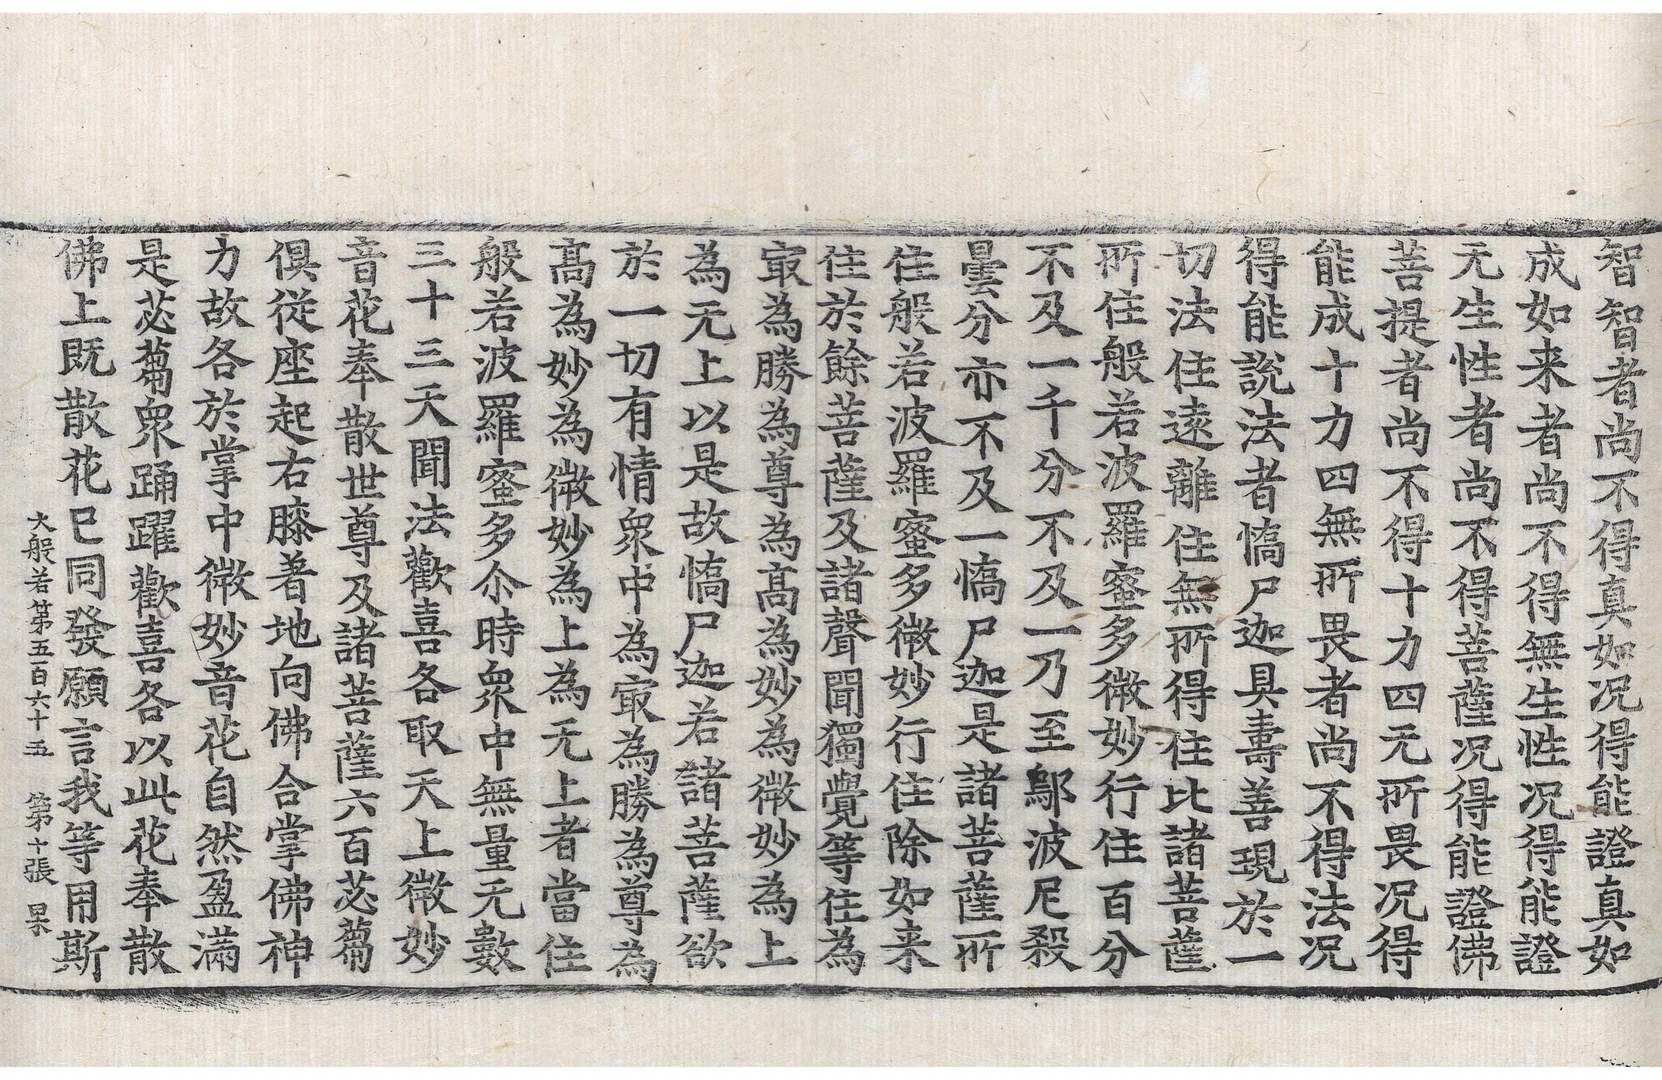 智智者尚不得真如况得能證真如
成如来者尚不得無生性况得能證
无生性者尚不得菩薩况得能證佛
菩提者尚不得十力四无所畏况得
能成十力四無所畏者尚不得法况
得能說法者憍尸迦具壽善現於一
切法住遠離住無所得住比諸菩薩
所住般若波羅蜜多微妙行住百分
不及一千分不及一乃至鄔波尼殺
曇分亦不及一憍尸迦是諸菩薩所
住般若波羅蜜多微妙行住除如来
住於餘菩薩及諸聲聞獨覺等住為
㝡為勝為尊為髙為妙為微妙為上
為无上以是故憍尸迦若諸菩薩欲
於一切有情衆中為㝡為勝為尊為
髙為妙為微妙為上為无上者當住
般若波羅蜜多尒時衆中無量无數
三十三天聞法歡喜各取天上微妙
音花奉散世尊及諸菩薩六百苾蒭
俱從座起右膝著地向佛合掌佛神
力故各於掌中微妙音花自然盈滿
是苾蒭衆踊躍歡喜各以此花奉散
佛上既散花已同發願言我等用斯
大般若第五百六十五 第十張 杲